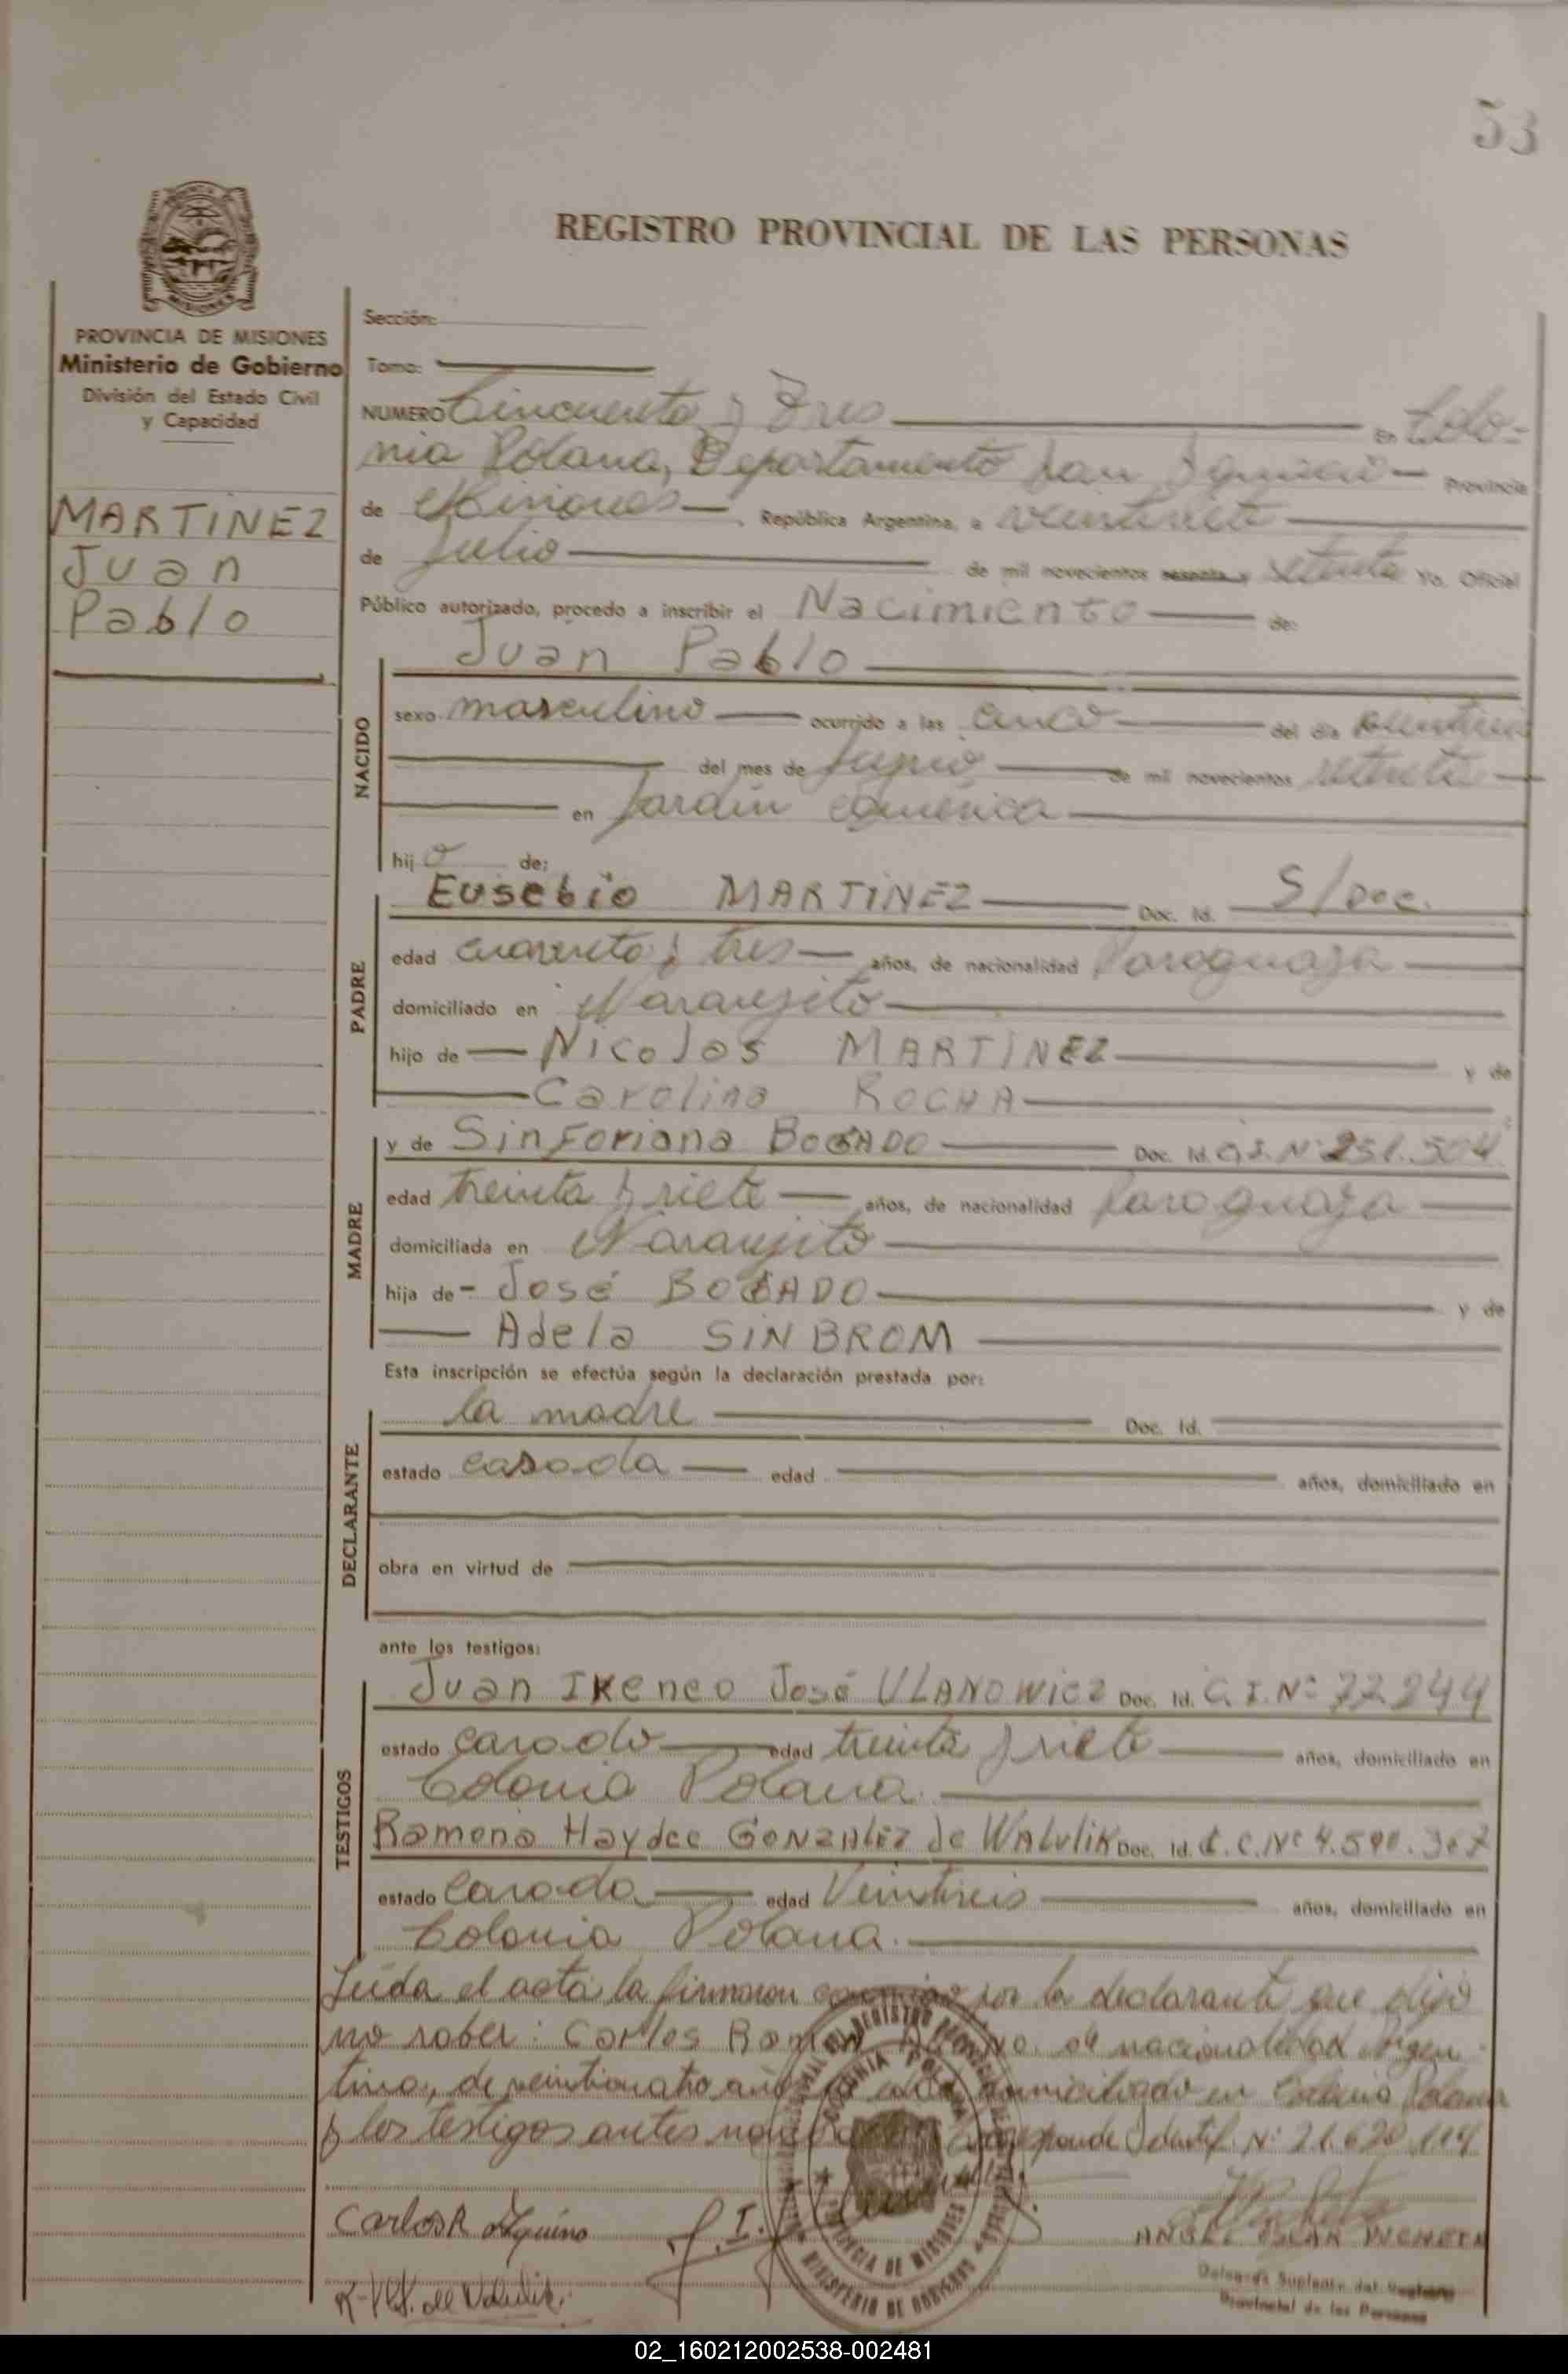 53
REGISTRO PROVINCIAL DE LAS PERSONAS
PROVINCIA DE MISIONES
Ministerio de Gobierno
División del Estado Civil
y Capacidad
MARTINEZ
Juan
Pablo
Sección:
Tomo:
NUMERO Cincuenta y Tres En Colo-
nia Polana, Departamento San Ignacio Provincia
de Misiones, República Argentina, a veintisiete
de Julio de mil novecientos sesenta y setenta Yo, Oficial
Público autorizado, procedo a inscribir el Nacimiento de:
Juan Pablo
NACIDO
sexo masculino ocurrido a las cinco del día
del mes de Junio de mil novecientos setenta
en Jardín América
hijo de:
PADRE
Eusebio MARTINEZ Doc. Id. S/Doc.
edad cuarenta y tres años, de nacionalidad Paraguaya
domiciliado en Naranjito
hijo de Nicolas MARTINEZ y de
Carolina ROCHA
MADRE
y de Sinforiana BOGADO Doc. Id. Nº 251.504
edad treinta y siete años, de nacionalidad Paraguaya
domiciliada en Naranjito
hija de José BOGADO y de
Adela SINBROM
Esta inscripción se efectúa según la declaración prestada por:
DECLARANTE
la madre Doc. Id.
estado casada edad años, domiciliado en
obra en virtud de
ante los testigos:
TESTIGOS
Juan Ireneo José ULANOWICZ Doc. Id. C.I. Nº 72244
estado casado edad treinta y siete años, domiciliado en
Colonia Polana.
Ramona Haydee GONZALEZ de WALULIK Doc. Id. L.C. Nº 4.590.367
estado casada edad Veintiseis años, domiciliado en
Colonia Polana.
Leída el acta la firmaron conmigo por la declarante que dijo
no saber: Carlos Ramon de nacionalidad Argen-
tina, de veinticuatro años de edad domiciliado en Colonia Polana
y los testigos antes Corresponde Identif. Nº 21.620.114
Carlos R Aquino
J.I.
R. H. G. de Walulik.
COLONIA POLANA
PROVINCIA DE MISIONES
MINISTERIO DE GOBIERNO
ANGEL OSCAR
Delegado Suplente del Registro
Provincial de las Personas
02_160212002538-002481